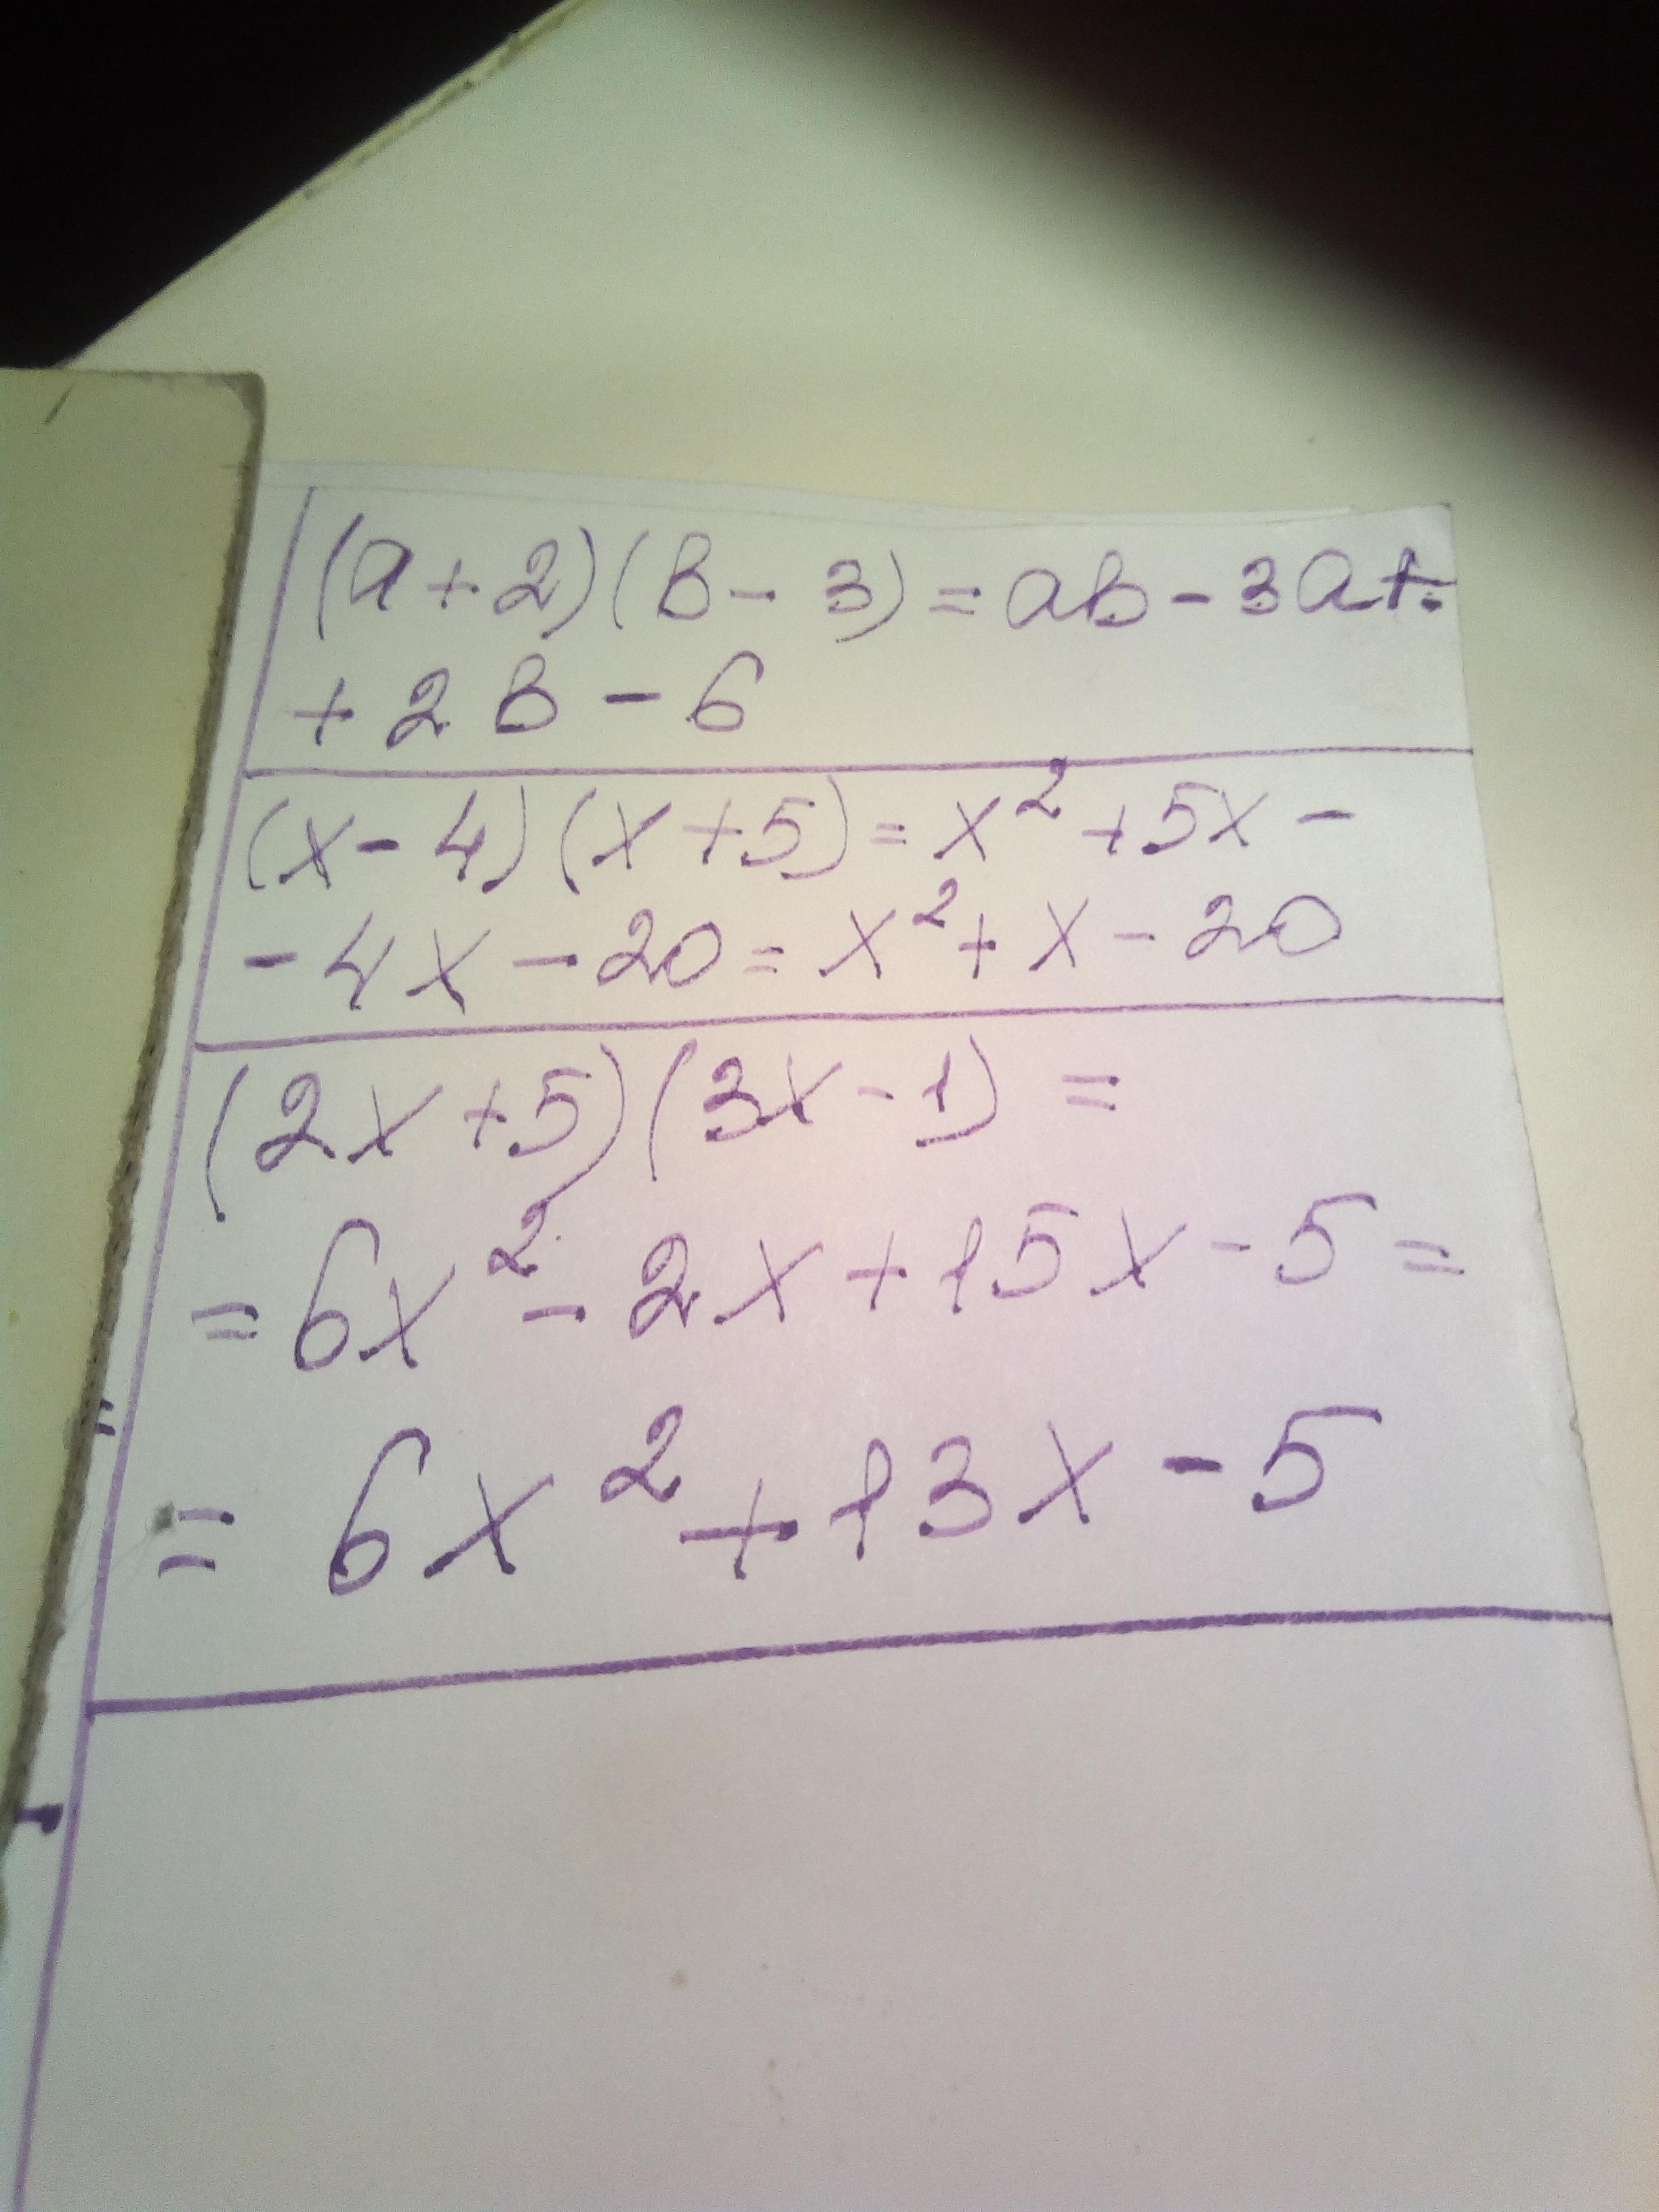 (a+2)(в-3)=ab-3a+
+2в-6
(x-4)(x+5)=x²+5x-
-4x-20=x²+x-20
(2x+5)(3x-1)=
=6x²-2x+15x-5=
=6x²+13x-5